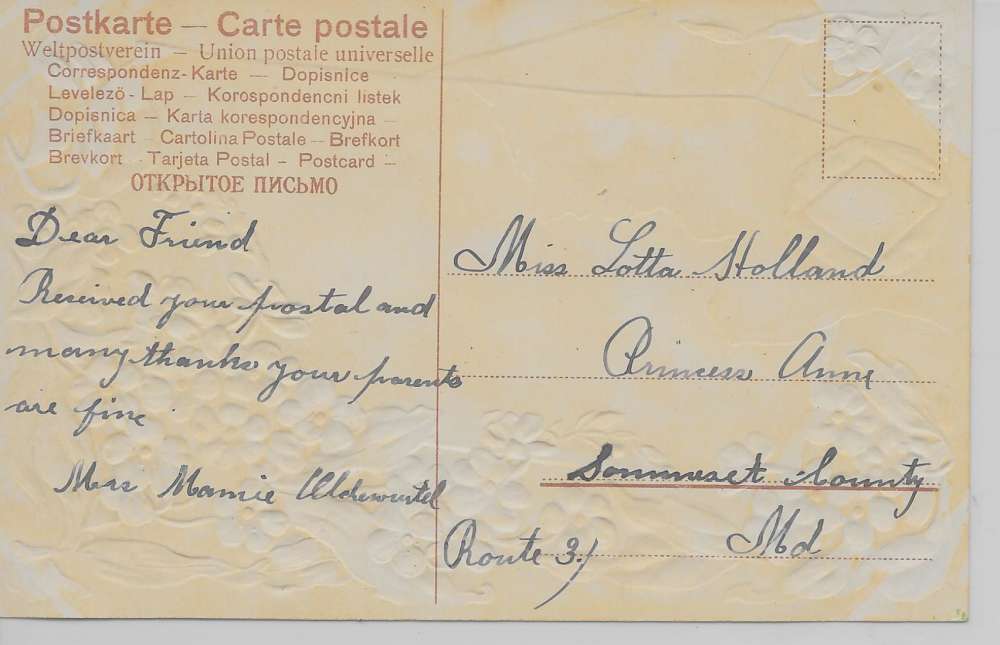 Postkarte — Carte postale
Weltpostverein — Union postale universelle
Correspondenz-Karte — Dopisnice
Levelező-Lap — Korospondencni listek
Dopisnica — Karta korespondencyjna —
Briefkaart — Cartolina Postale — Brefkort
Brevkort — Tarjeta Postal — Postcard —
ОТКРЫТОЕ ПИСЬМО
Dear Friend
Received your postal and
many thanks your parents
are fine
Mamie
Miss Lotta Holland
Princess Anne
Sommuset County
Md
Route 3.